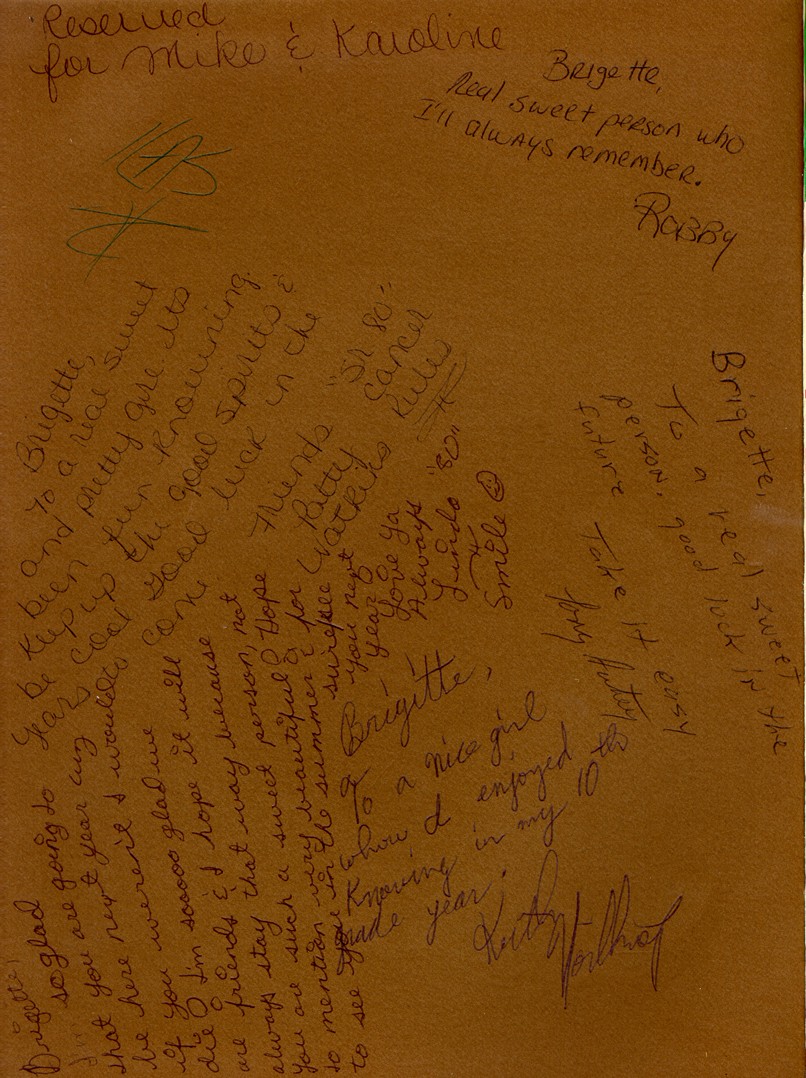 Reserved
for Mike & Karoline
Brigette,
Real sweet person who
I'll always remember.
Robby
Brigette,
To a real sweet
and pretty girl. Its
been fun knowing
Keep up the good spirits &
good luck in the
Friends
Patty
Watkins
"Sr 80"
Cancer
Rules
Brigette,
To a real sweet
person. good luck in the
future Take it easy
Brigette,
I'm so glad
that you are going to
be here next year cuz
if you weren't I would
die! I'm sooooo glad we
are friends & I hope it will
always stay that way because
you are such a sweet person, not
to mention very beautiful! Hope
to see you in the summer & for
sure see
you next
year!
Love Ya
Always
Linda "80"
Smile
Brigette,
To a nice girl
whom I enjoyed
Knowing in my 10th
grade year.